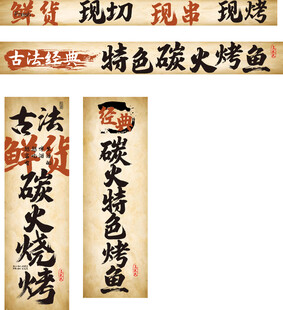 鲜货 现切 现串 现烤
古法经典 特色碳火烤鱼
古法
鲜货
碳火烧烤
经典
碳火特色烤鱼